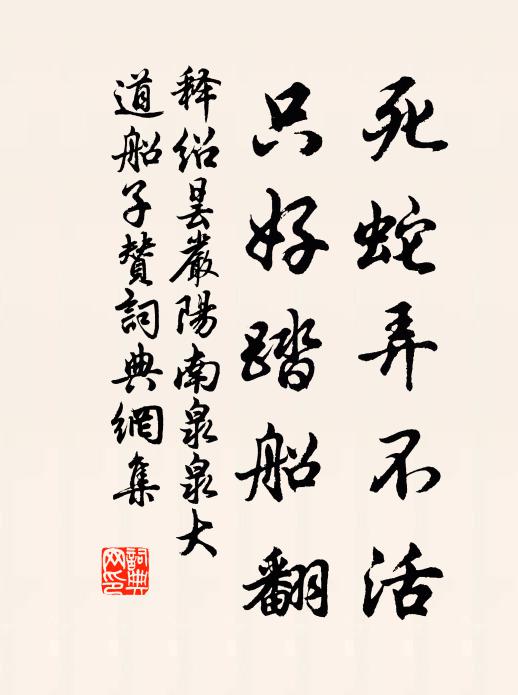 死蛇弄不活
只好踏船翻
释绍昙嚴陽南泉泉大
道船子赞詞典網集
詞典网印